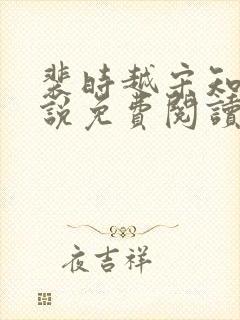 裴時越宋知
說免費閱讀
夜吉祥